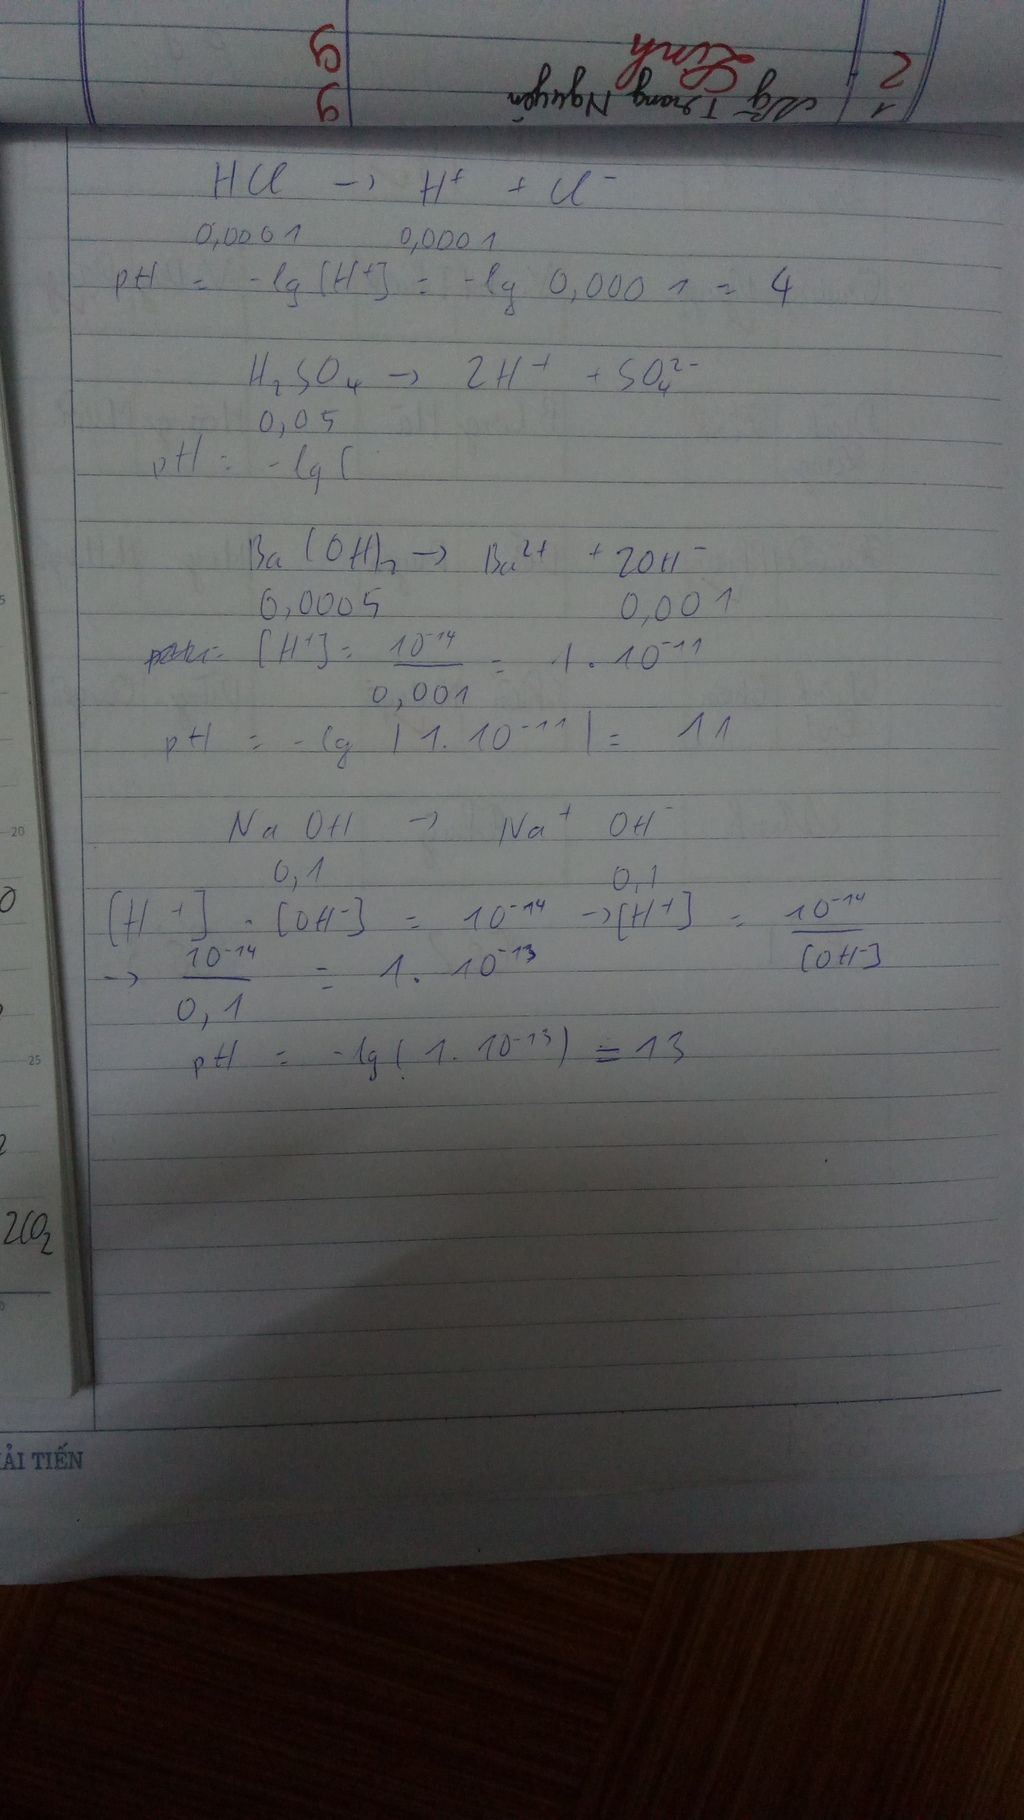 9 9
Linh
Ng Trang Nguyên
1 2
HCl → H⁺ + Cl⁻
0,0001 0,0001
pH = -lg [H⁺] = -lg 0,0001 = 4
H₂SO₄ → 2H⁺ + SO₄²⁻
0,05
pH = -lg [
Ba(OH)₂ → Ba²⁺ + 2OH⁻
0,0005 0,001
[H⁺] = 10⁻¹⁴ / 0,001 = 1.10⁻¹¹
pH = -lg |1.10⁻¹¹| = 11
NaOH → Na⁺ OH⁻
0,1 0,1
[H⁺] . [OH⁻] = 10⁻¹⁴ → [H⁺] = 10⁻¹⁴ / [OH⁻]
→ 10⁻¹⁴ / 0,1 = 1.10⁻¹³
pH = -lg(1.10⁻¹³) = 13
20
25
2CO₂
ẢI TIẾN